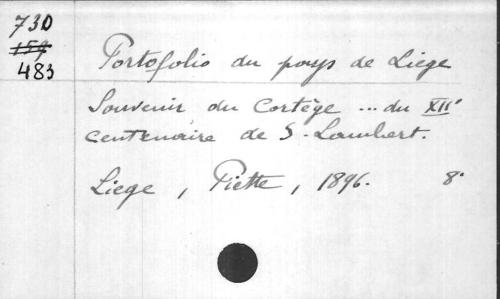 730
159
483
Portofolio du pays de Liege
Souvenir du Cortège ... du XIIe
centenaire de S. Lambert.
Liege, Piette, 1896. 8°